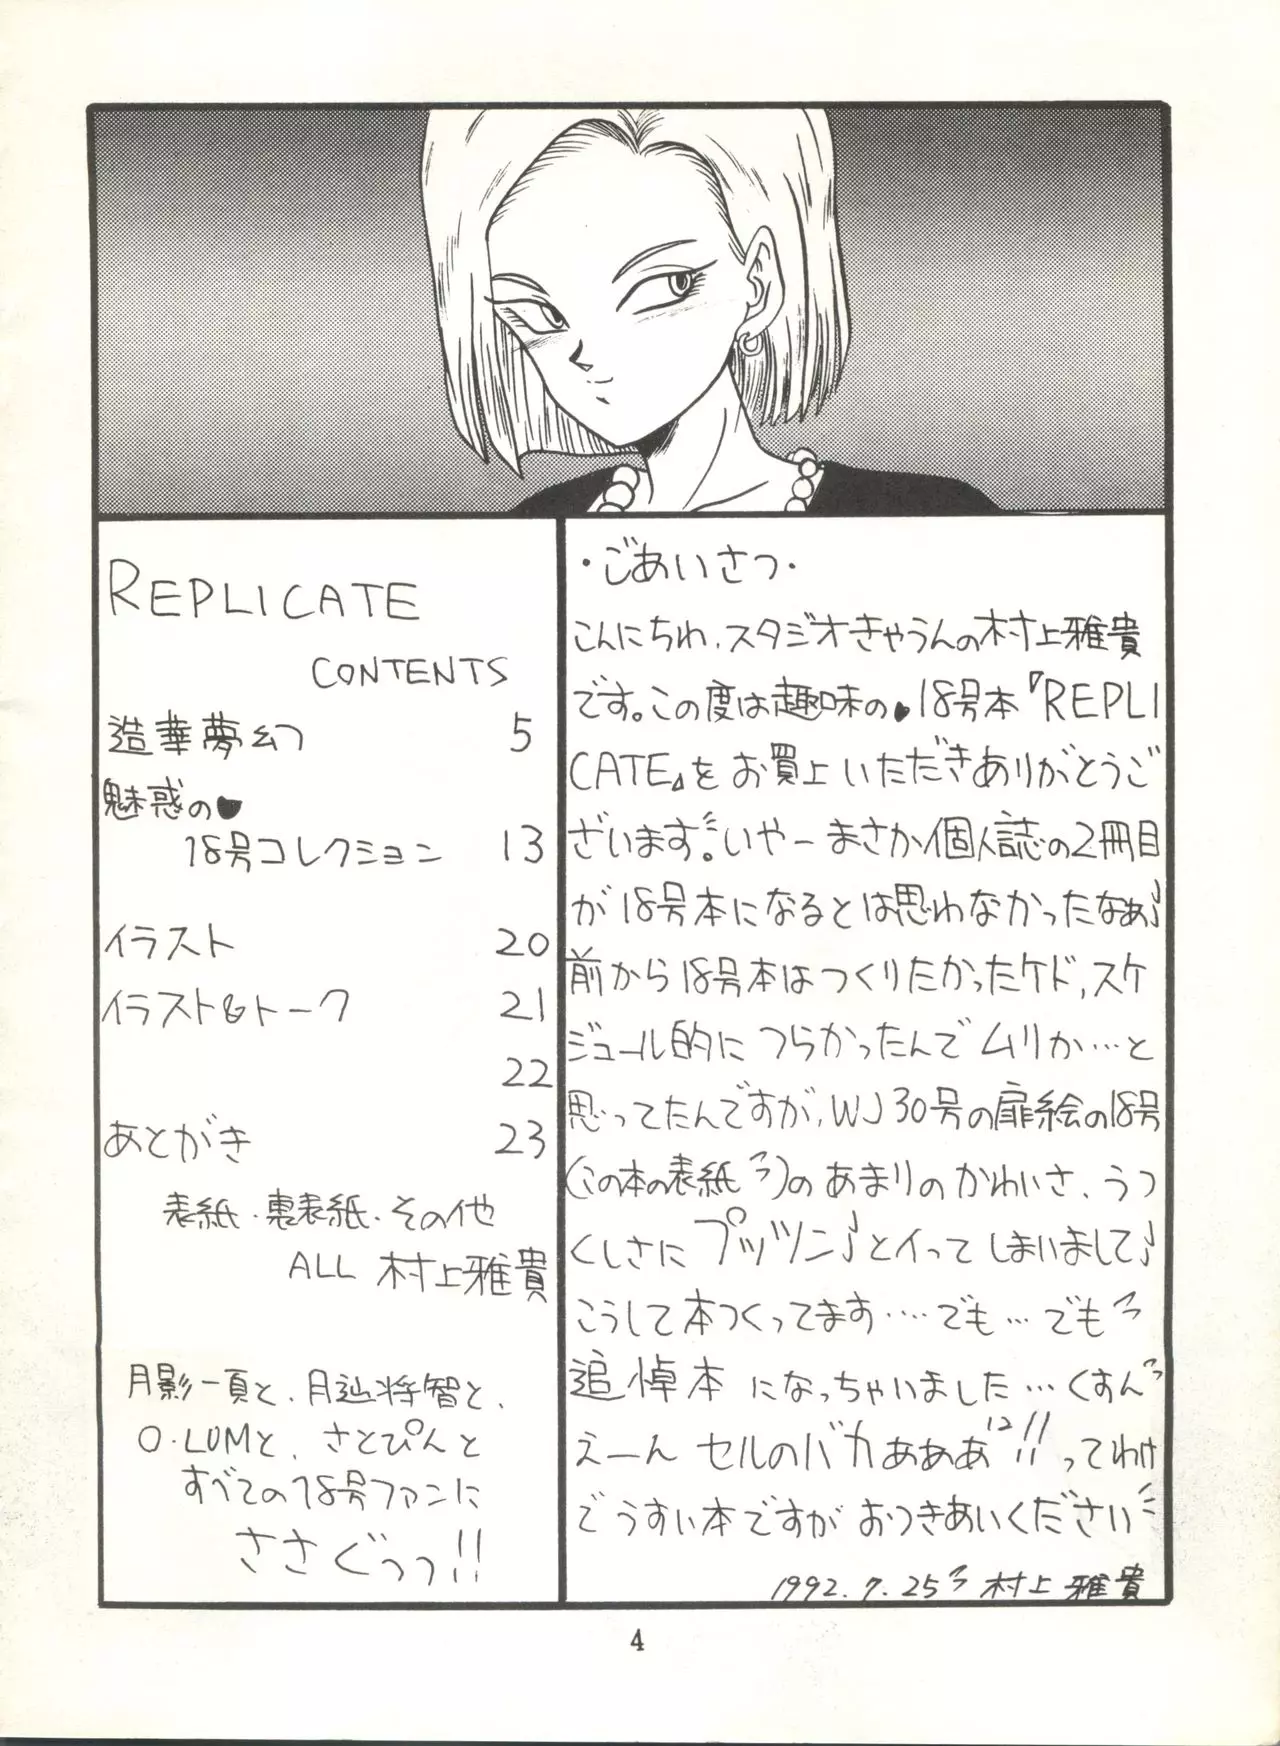 REPLICATE
CONTENTS
造華夢幻 5
魅惑の♥
18号コレクション 13
イラスト 20
イラスト&トーク 21
22
あとがき 23
表紙・裏表紙・その他
ALL 村上雅貴
月影一頁と、月辿将智と、
O・LUMと、さとぴんと
すべての18号ファンに
ささぐっっ!!
・ごあいさつ・
こんにちわ、スタジオきゃうんの村上雅貴
です。この度は趣味の♥18号本『REPLI
CATE』をお買上いただきありがとうご
ざいます。いやーまさか個人誌の2冊目
が18号本になるとは思わなかったなぁ♪
前から18号本はつくりたかったケド,スケ
ジュール的につらかったんでムリか…と
思ってたんですが,WJ30号の扉絵の18号
(この本の表紙っ)のあまりのかわいさ、うつ
くしさにプッツン♪とイってしまいまして♪
こうして本つくってます‥‥でも…でもっ
追悼本になっちゃいました…くすんっ
えーんセルのバカあああ!!ってわけ
でうすい本ですがおつきあいください
1992.7.25 村上雅貴
4